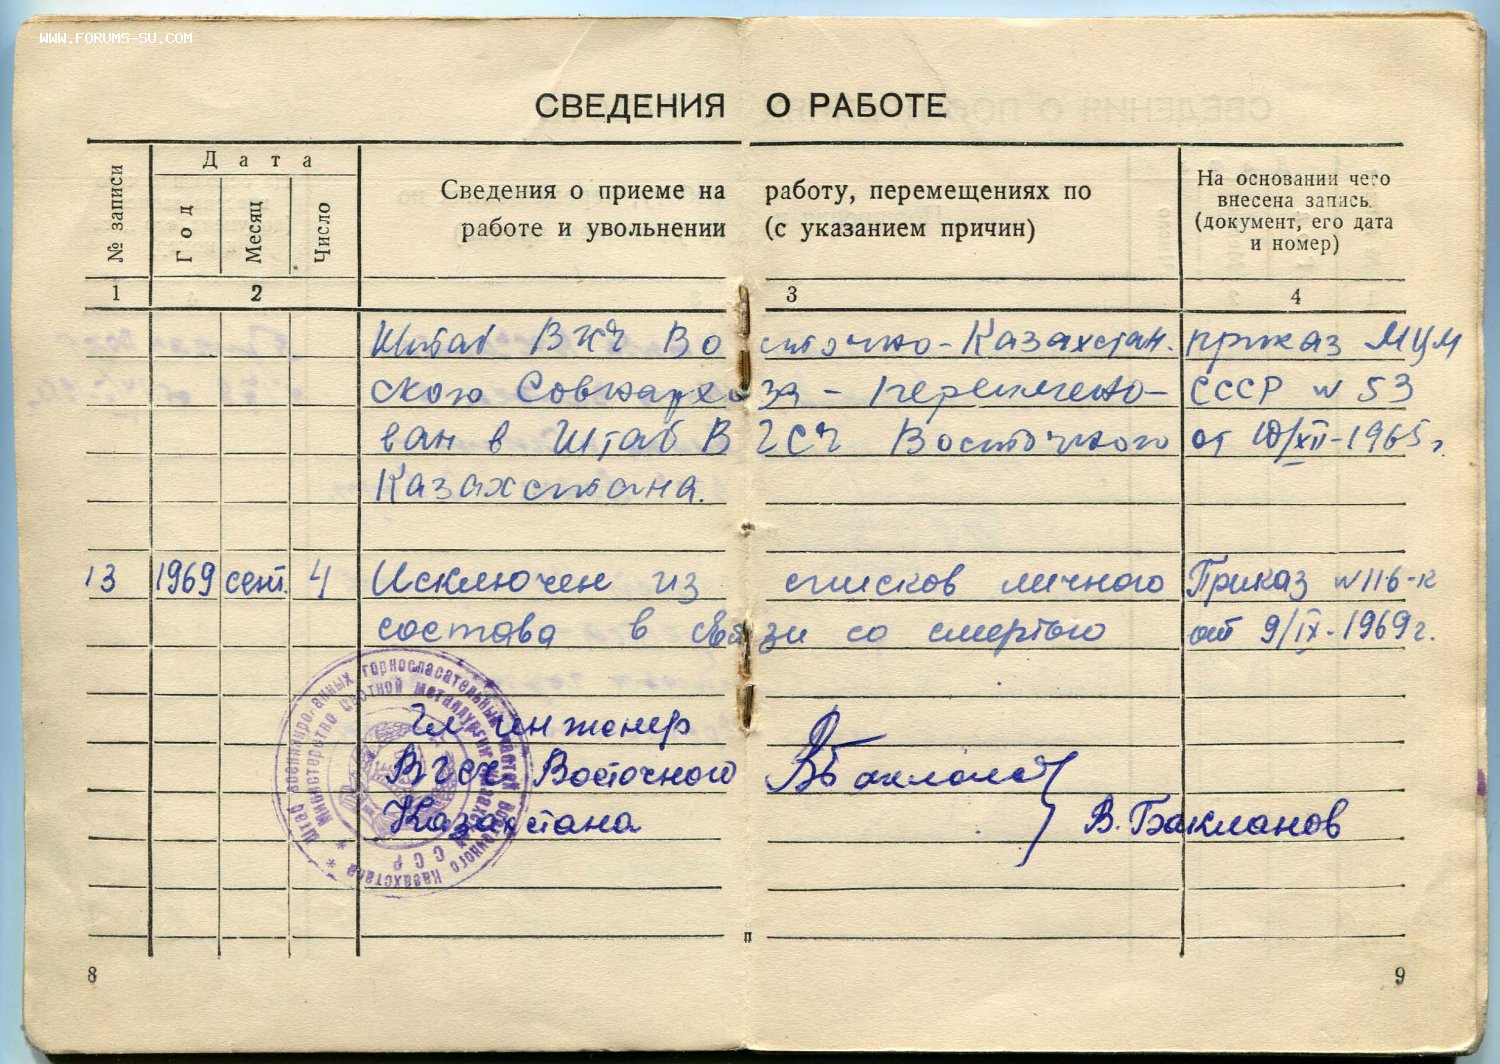 WWW.FORUMS-SU.COM
СВЕДЕНИЯ О РАБОТЕ
№ записи
Дата
Год
Месяц
Число
Сведения о приеме на работу, перемещениях по
работе и увольнении (с указанием причин)
На основании чего
внесена запись
(документ, его дата
и номер)
1 2 3 4
Штаб ВГСЧ Восточно-Казахстан. приказ МЦМ
ского Совнархоза - переимено- СССР № 53
ван в Штаб ВГСЧ Восточного от 10/XII-1965г.
Казахстана.
13 1969 сент. 4 Исключен из списков личного Приказ №116-к
состава в связи со смертью от 9/IX-1969г.
Гл инженер
ВГСЧ Восточного
Казахстана В. Бакланов
Штаб военизированных горноспасательных частей Восточного Казахстана
Министерство цветной металлургии Казахской ССР
п
8 9